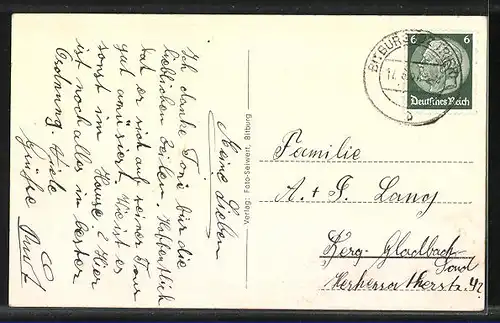 Meine Lieben
Ich danke Toni für die
lieblichen Zeilen. Hoffentlich
hat er sich auf seiner Tour
gut amüsiert. Wie ist es
sonst im Hause? Hier
ist noch alles in bester
Ordnung. Viele
Grüße
Verlag: Foto-Steinwert, Bitburg
BITBURG
6 6
Deutsches Reich
b
Familie
A. + J. Lang
Berg. Gladbach
Sand
Herkenratherstr.